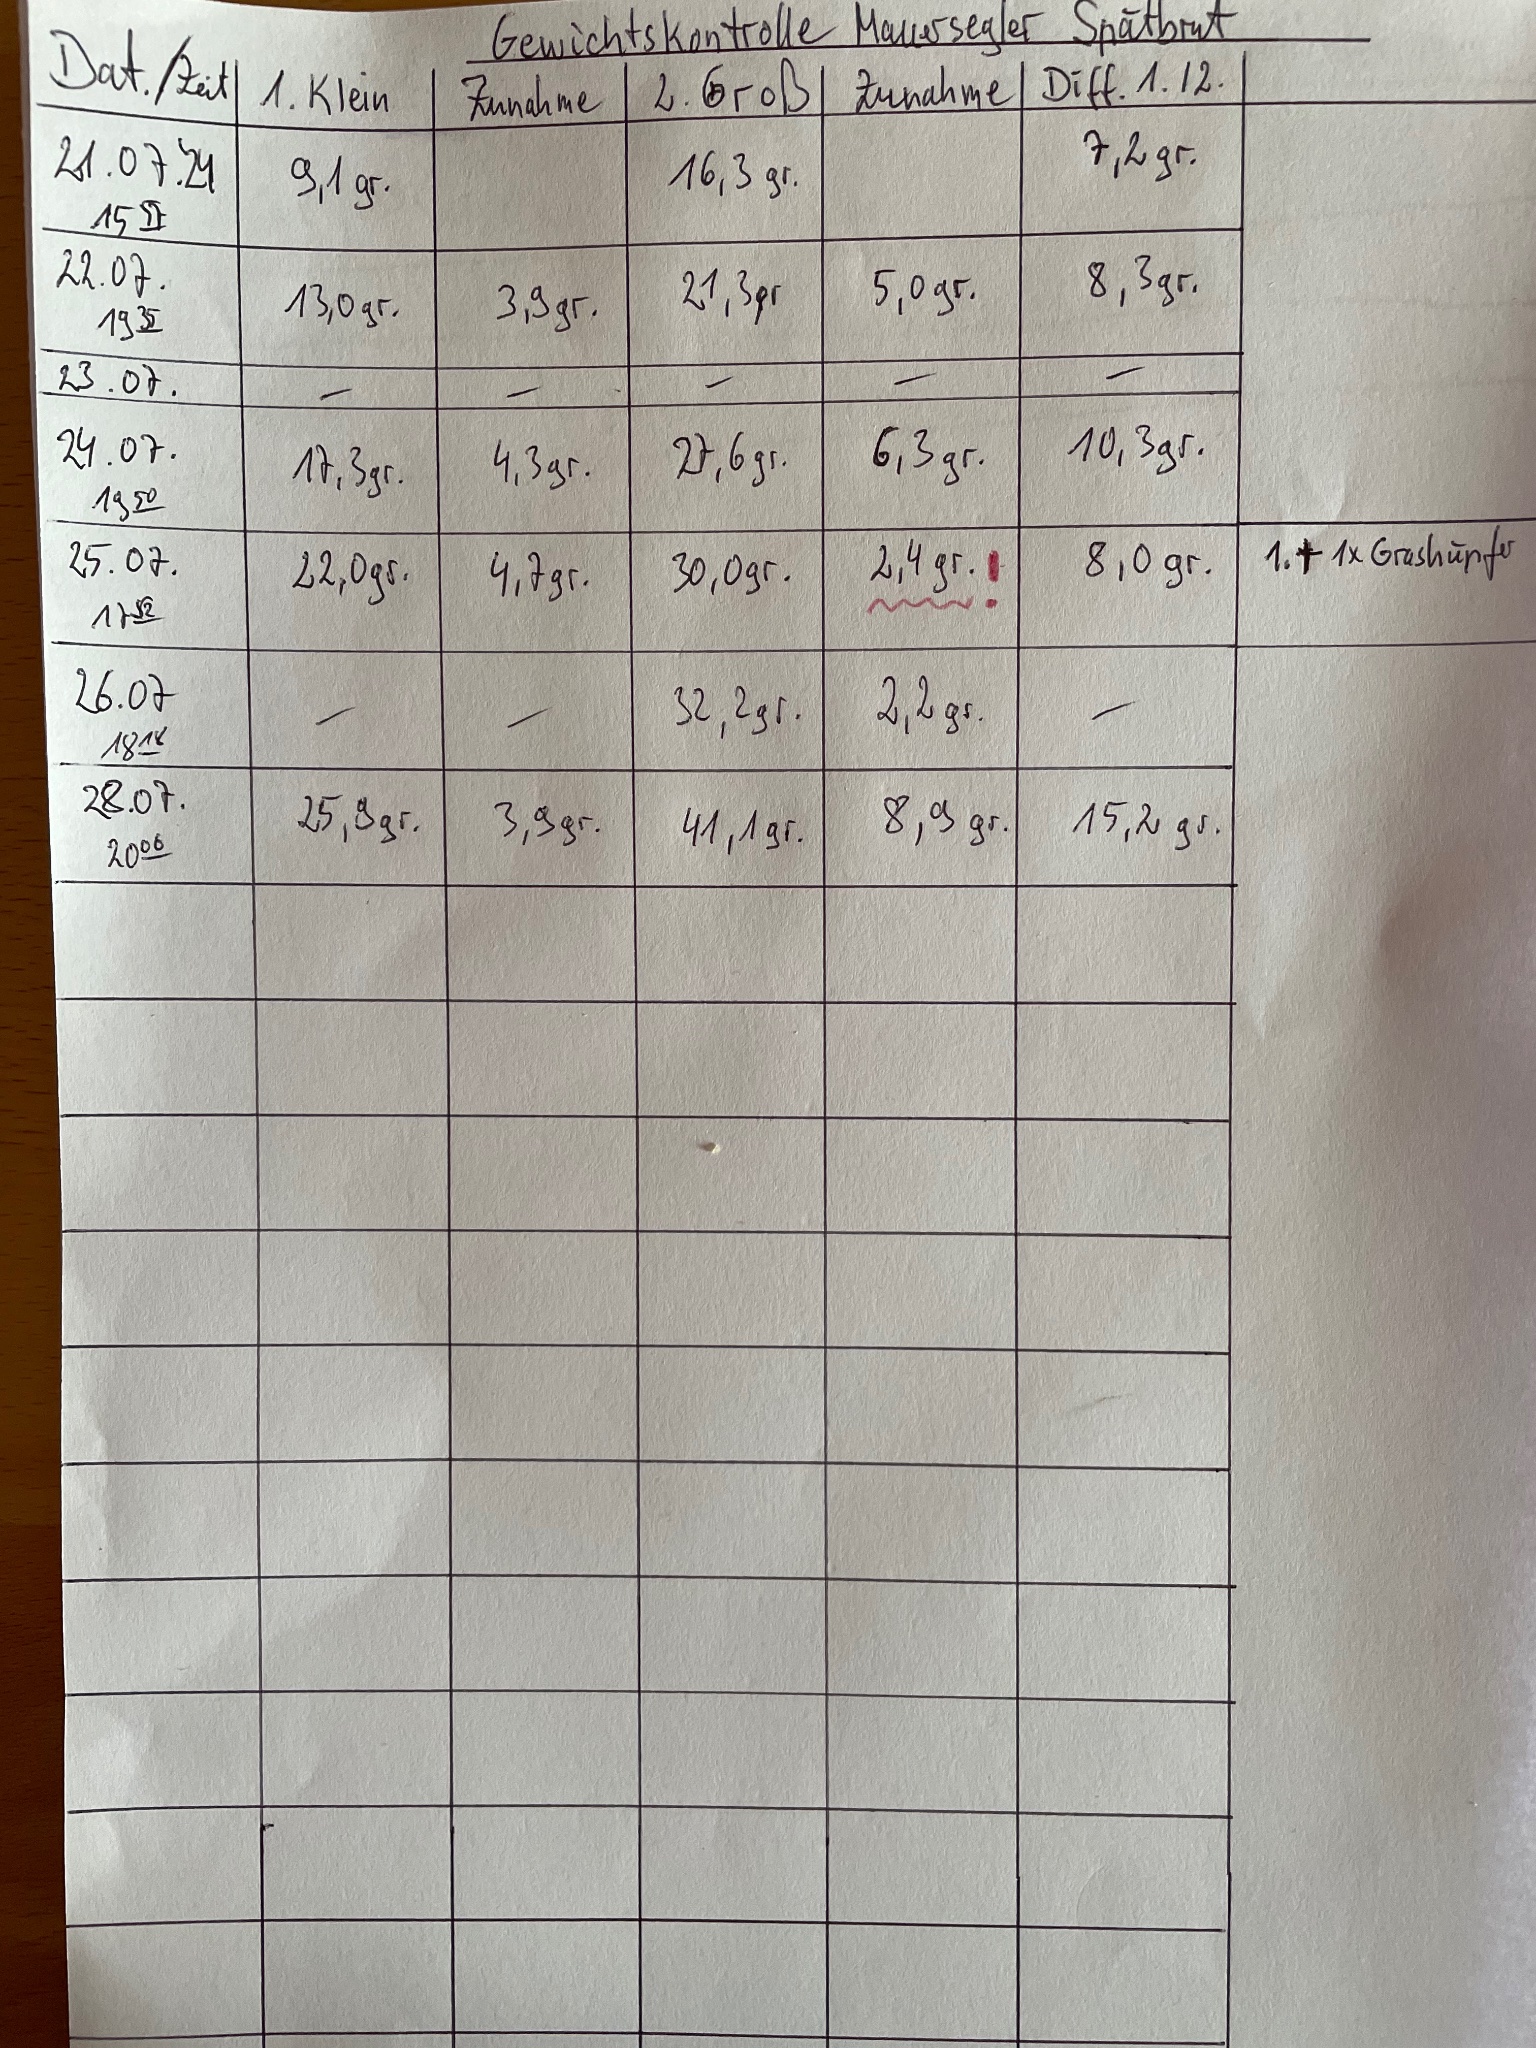 Gewichtskontrolle Mauersegler Spätbrut
Dat./Zeit 1. Klein Zunahme 2. Groß Zunahme Diff. 1./2.
21.07.'24 9,1 gr. 16,3 gr. 7,2 gr.
15
22.07. 13,0 gr. 3,9 gr. 21,3 gr 5,0 gr. 8,3 gr.
19 35
23.07. – – – – –
24.07. 17,3 gr. 4,3 gr. 27,6 gr. 6,3 gr. 10,3 gr.
19 50
25.07. 22,0 gr. 4,7 gr. 30,0 gr. 2,4 gr. ! 8,0 gr. 1. + 1x Grashüpfer
17 52
26.07 – – 32,2 gr. 2,2 gr. –
18 18
28.07. 25,9 gr. 3,9 gr. 41,1 gr. 8,9 gr. 15,2 gr.
20 06